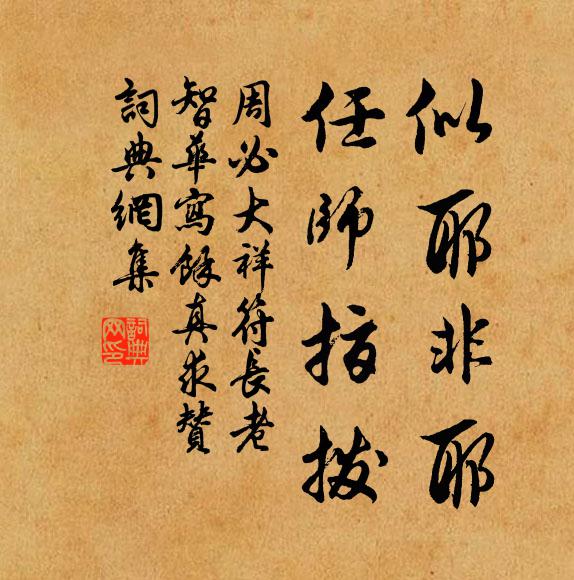 似耶非耶
任师指拨
周必大祥符長老
智華寫餘真求贊
詞典網集
詞典
网印